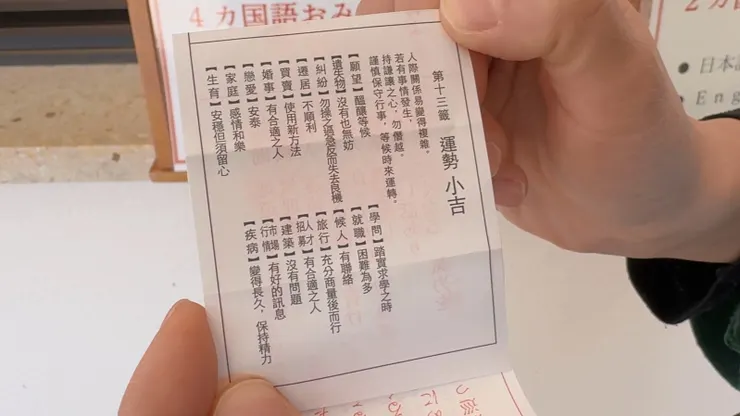 4ヵ国語おみ
2ヵ国
● 日本語
● Eng
第十三籤 運勢 小吉
人際關係易變得複雜。
若有事情發生，
持謙讓之心，勿僭越。
謹慎保守行事，等候時來運轉。
【願望】醞釀等候
【遺失物】沒有也無妨
【糾紛】勿操之過急反而失去良機
【遷居】不順利
【買賣】使用新方法
【婚事】有合適之人
【戀愛】安泰
【家庭】感情和樂
【生育】安穩但須留心
【學問】踏實求學之時
【就職】困難為多
【候人】有聯絡
【旅行】充分商量後而行
【人才招募】有合適之人
【建築】沒有問題
【市場行情】有好的訊息
【疾病】變得長久，保持精力